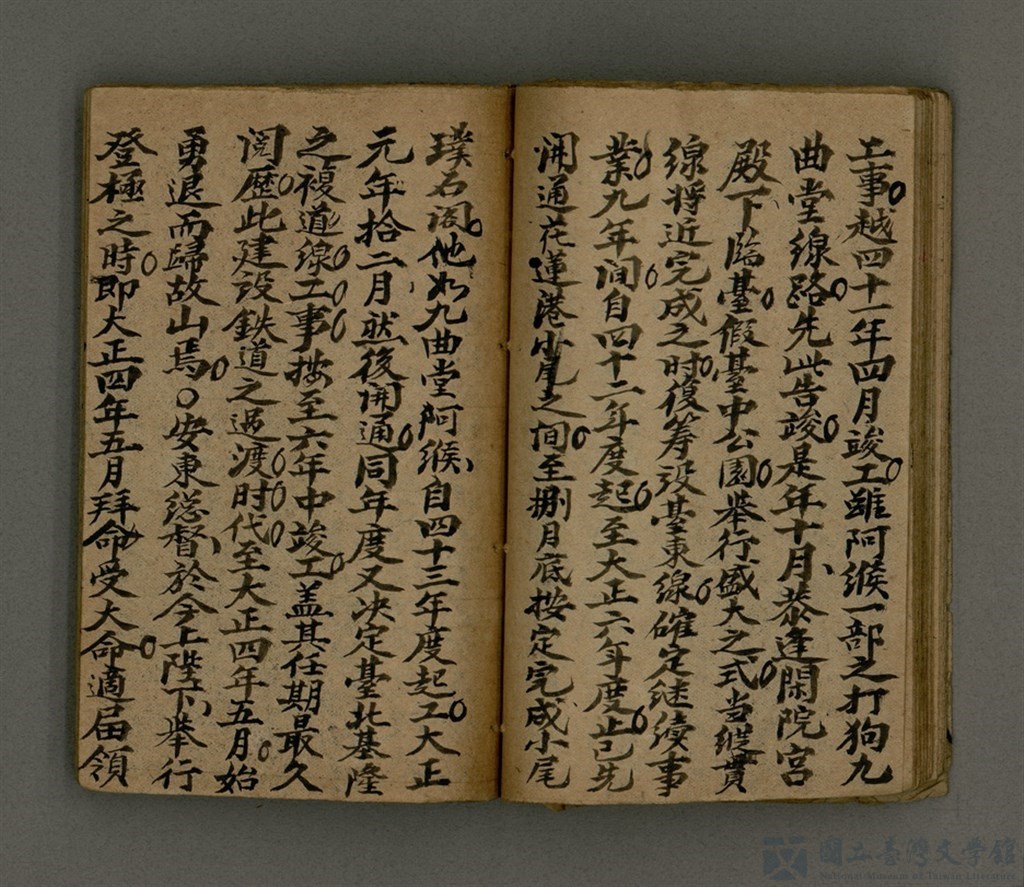 工事。越四十一年四月竣工。雖阿猴一部之打狗九
曲堂線路。先此告竣。是年十月、恭逢閑院宮
殿下臨臺。假臺中公園。舉行盛大之式。当縱貫
線將近完成之时。復筹設臺東線。確定継续事
業。九年间。自四十二年度起。至大正六年度止。已先
開通花蓮港小尾之间。至捌月底按定完成小尾
璞石阁。他如九曲堂阿猴、自四十三年度起工。大正
元年拾二月然後開通。同年度又决定臺北基隆
之複道線。工。事。按至六年中竣工。盖其任期最久
阅歷。此建設鉄道之过渡。时。代。至大正四年五月。始
勇退而歸故山焉。○安東総督、於今上陛下、舉行
登極之時。即大正四年五月拜命受大命。適届領
國立臺灣文學館
National Museum of Taiwan Literature